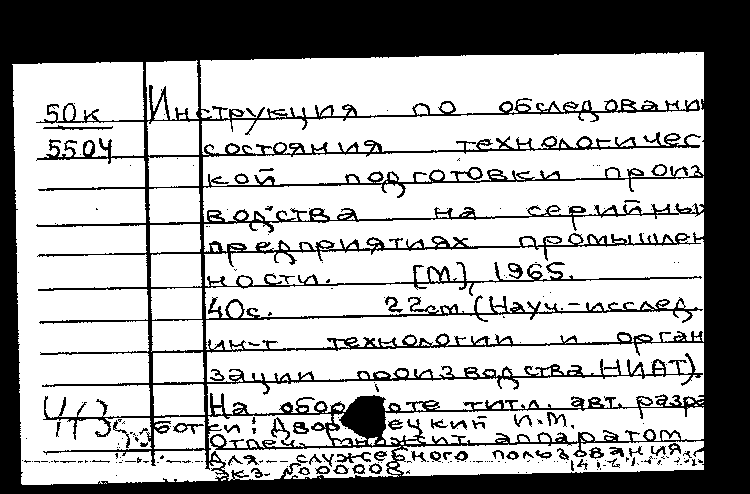 50к
5504
Инструкция по обследовани
состояния технологичес-
кой подготовки произ
водства на серийны
предприятиях промышлен
ности. [М.], 1965.
40с. 22см. (Науч.-исслед.
ин-т технологии и орган
зации производства. НИАТ).
На обор оте тит.л. авт. разра
ботки: Двор ецкий И.М.
Отпеч. множит. аппаратом
Для служебного пользования.
Экз. №000008.